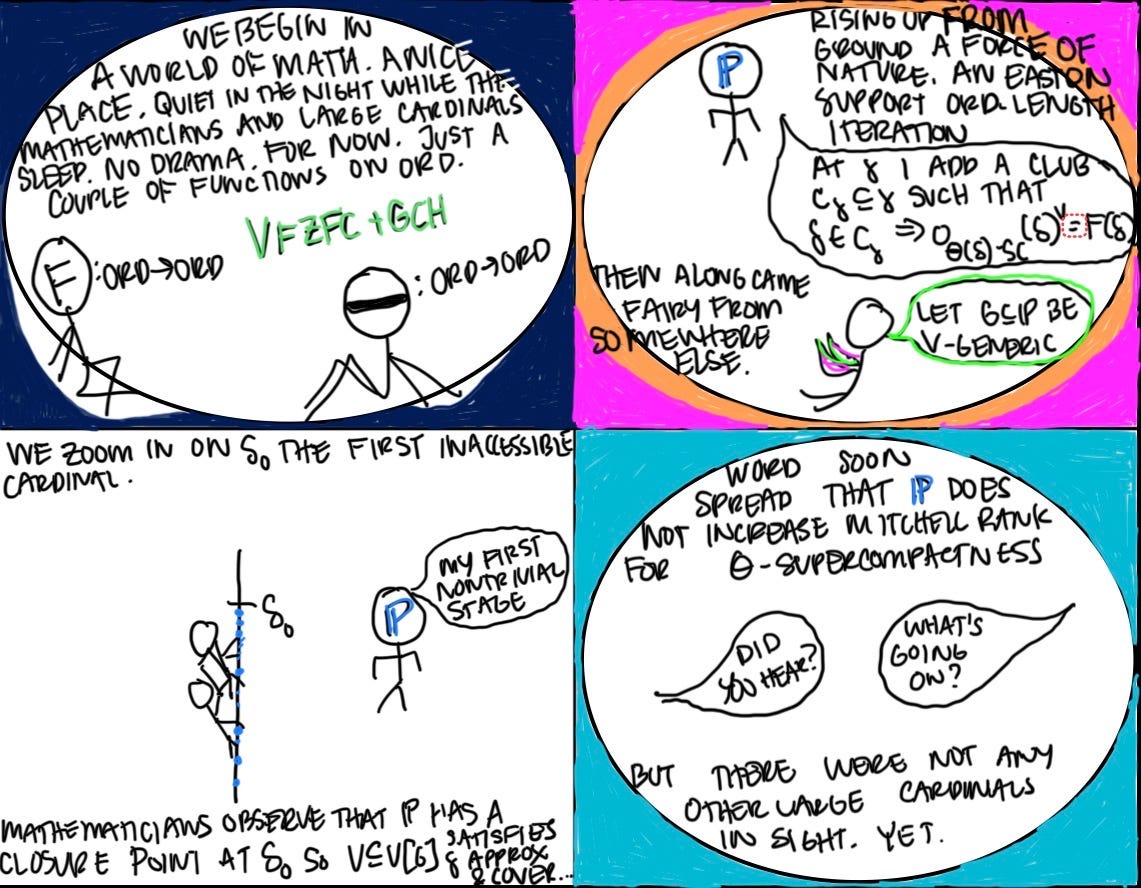 WE BEGIN IN
A WORLD OF MATH. A NICE
PLACE. QUIET IN THE NIGHT WHILE THE
MATHEMATICIANS AND LARGE CARDINALS
SLEEP. NO DRAMA. FOR NOW. JUST A
COUPLE OF FUNCTIONS ON ORD.
V⊨ZFC+GCH
F :ORD→ORD
:ORD→ORD
RISING UP FROM
GROUND A FORCE OF
NATURE. AN EASTON
SUPPORT ORD-LENGTH
ITERATION
ℙ
AT γ I ADD A CLUB
C_γ ⊆ γ SUCH THAT
δ ∈ C_γ ⇒ O_{θ(δ)-SC}(δ)^V = F(δ)
THEN ALONG CAME
FAIRY FROM
SOMEWHERE
ELSE.
LET G⊆ℙ BE
V-GENERIC
WE ZOOM IN ON δ₀ THE FIRST INACCESSIBLE
CARDINAL.
δ₀
MY FIRST
NONTRIVIAL
STAGE
ℙ
MATHEMATICIANS OBSERVE THAT ℙ HAS A
CLOSURE POINT AT δ₀ SO V⊆V[G] SATISFIES
δ APPROX
& COVER...
WORD SOON
SPREAD THAT ℙ DOES
NOT INCREASE MITCHELL RANK
FOR θ-SUPERCOMPACTNESS
DID
YOU HEAR?
WHAT'S
GOING
ON?
BUT THERE WERE NOT ANY
OTHER LARGE CARDINALS
IN SIGHT. YET.